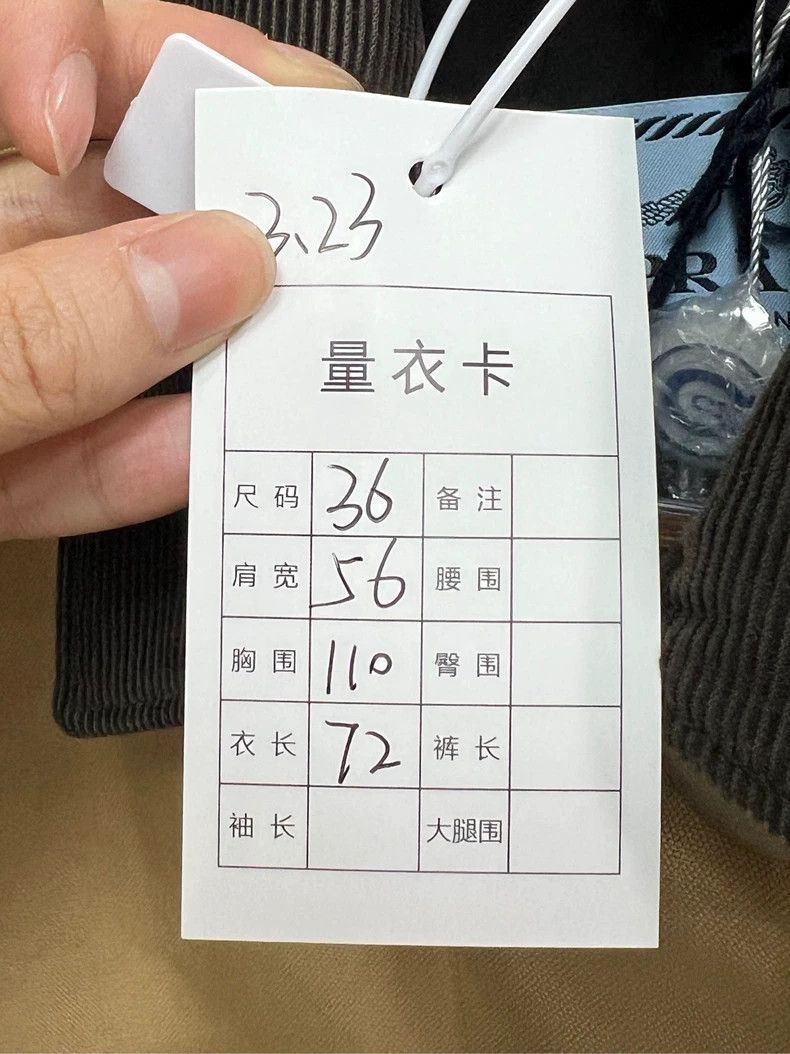 3、23
量衣卡
尺码 36 备注
肩宽 56 腰围
胸围 110 臀围
衣长 72 裤长
袖长 大腿围